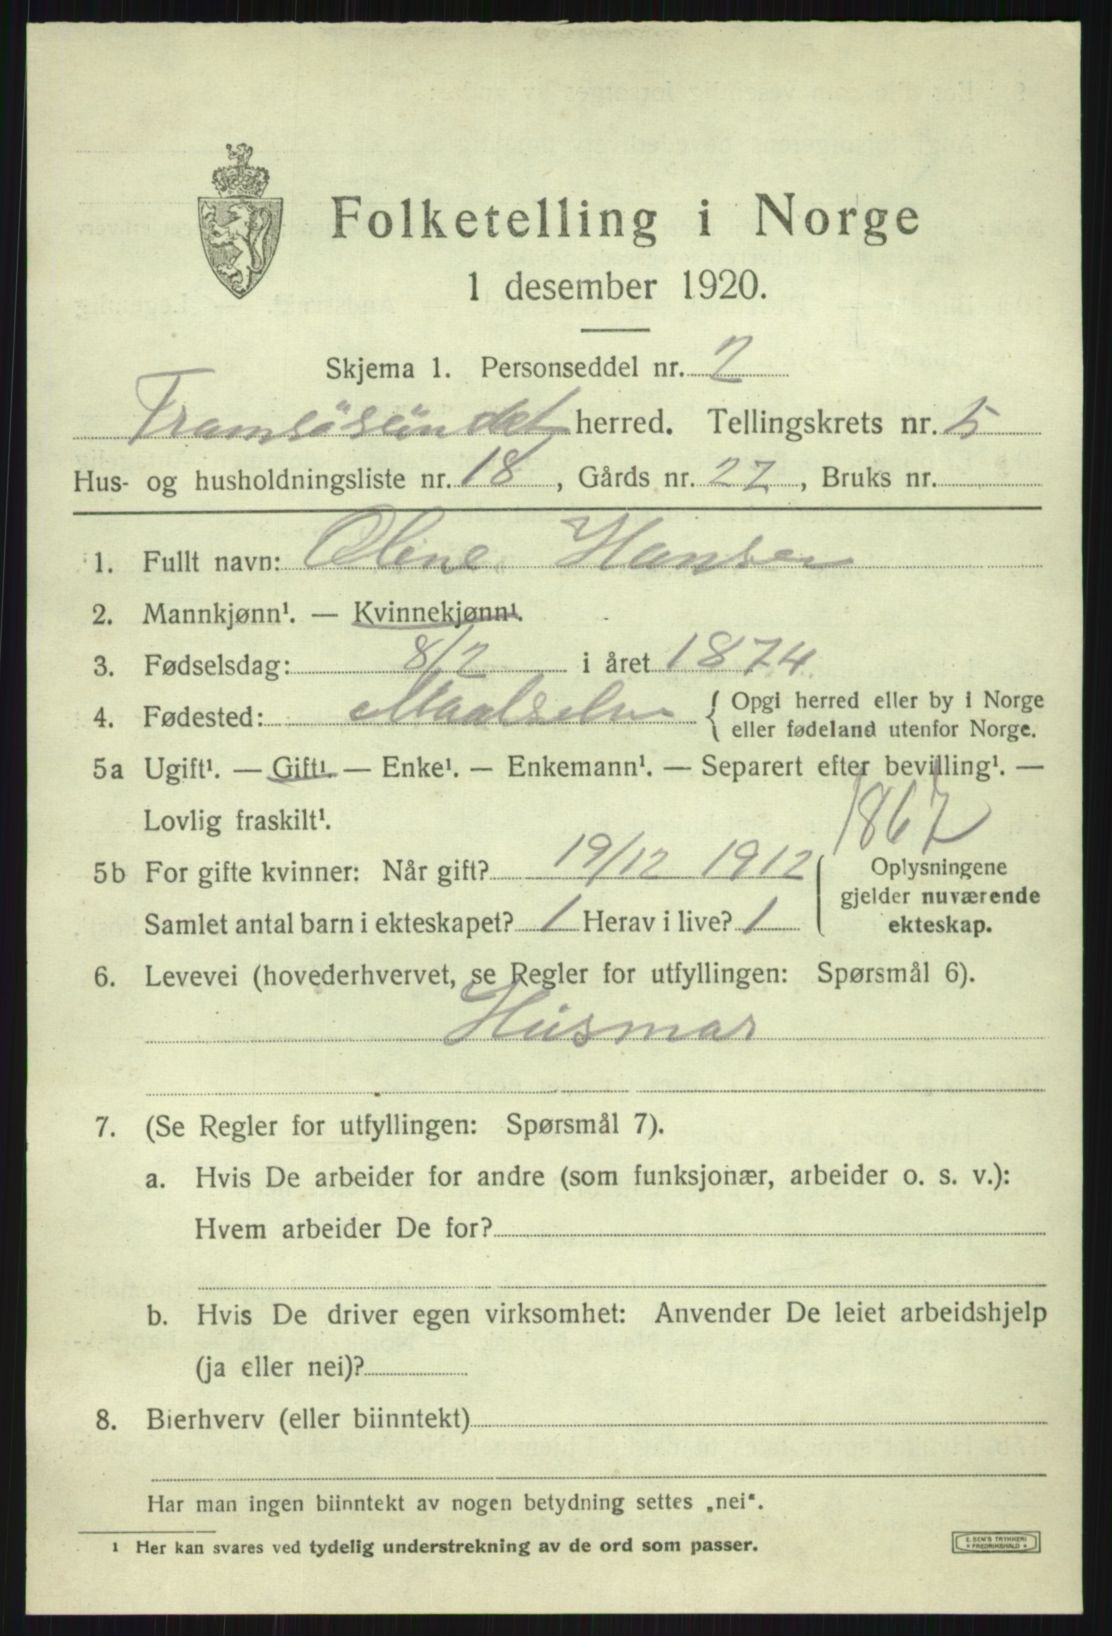 Folketelling i Norge
1 desember 1920.
Skjema 1. Personseddel nr. 2
Tromsøsundet herred. Tellingskrets nr. 5
Hus- og husholdningsliste nr. 18, Gårds nr. 22, Bruks nr.
1. Fullt navn: Oline Hansen
2. Mannkjønn¹. — Kvinnekjønn¹.
3. Fødselsdag: 8/2 i året 1874
4. Fødested: Maalselv { Opgi herred eller by i Norge
eller fødeland utenfor Norge.
5a Ugift¹. — Gift¹. — Enke¹. — Enkemann¹. — Separert efter bevilling¹. —
Lovlig fraskilt¹.
1867
5b For gifte kvinner: Når gift? 19/12 1912
Oplysningene
gjelder nuværende
ekteskap.
Samlet antal barn i ekteskapet? 1 Herav i live? 1
6. Levevei (hovederhvervet, se Regler for utfyllingen: Spørsmål 6).
Husmor
7. (Se Regler for utfyllingen: Spørsmål 7).
a. Hvis De arbeider for andre (som funksjonær, arbeider o. s. v.):
Hvem arbeider De for?
b. Hvis De driver egen virksomhet: Anvender De leiet arbeidshjelp
(ja eller nei)?
8. Bierhverv (eller biinntekt)
Har man ingen biinntekt av nogen betydning settes „nei“.
¹ Her kan svares ved tydelig understrekning av de ord som passer.
E. SEM'S TRYKKERI
FREDRIKSHALD